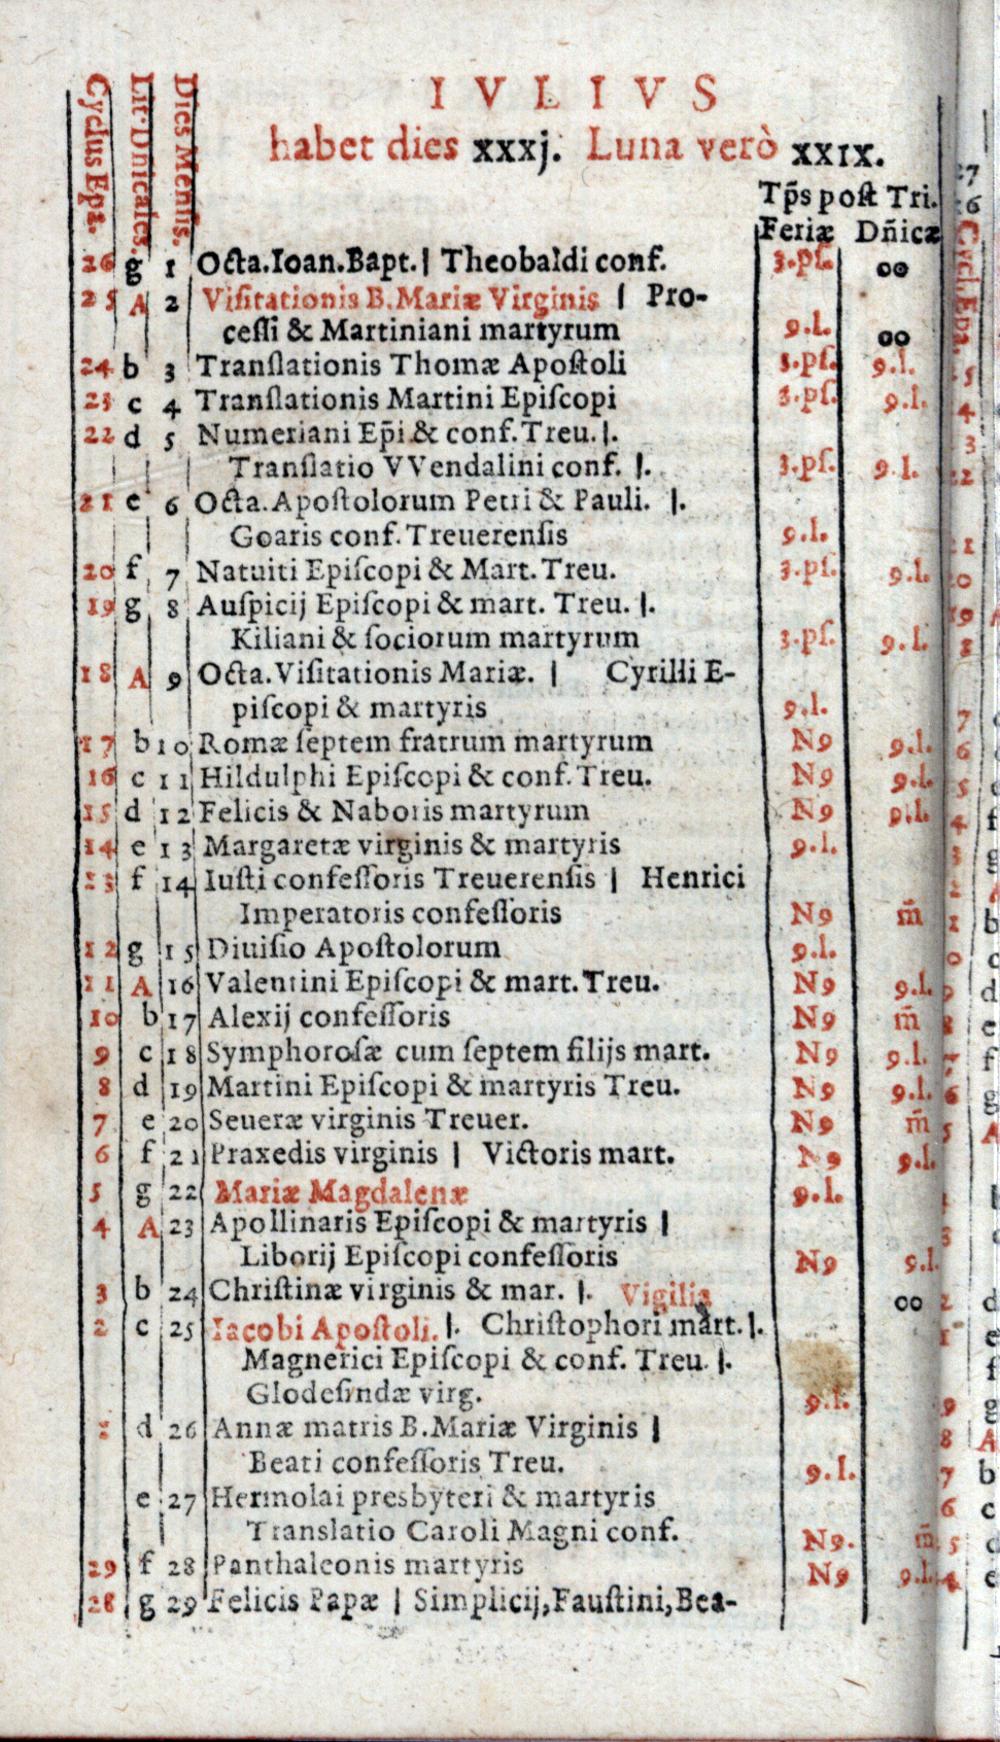 IVLIVS
habet dies xxxj. Luna verò XXIX.
Cyclus Epa.
Lit. Dnicales.
Dies Mensis.
Tp̄s post Tri.
Feriæ Dñicæ
26 g 1 Octa. Ioan. Bapt. | Theobaldi conf. 3.ps. oo
25 A 2 Visitationis B. Mariæ Virginis | Pro-
cessi & Martiniani martyrum 9.l. oo
24 b 3 Translationis Thomæ Apostoli 3.ps. 9.l.
23 c 4 Translationis Martini Episcopi 3.ps. 9.l.
22 d 5 Numeriani Ep̄i & conf. Treu. |.
Translatio VVendalini conf. |. 3.ps. 9.l.
21 e 6 Octa. Apostolorum Petri & Pauli. |.
Goaris conf. Treuerensis 9.l.
20 f 7 Natuiti Episcopi & Mart. Treu. 3.ps. 9.l.
19 g 8 Auspicij Episcopi & mart. Treu. |.
Kiliani & sociorum martyrum 3.ps. 9.l.
18 A 9 Octa. Visitationis Mariæ. | Cyrilli E-
piscopi & martyris 9.l.
17 b 10 Romæ septem fratrum martyrum N9 9.l.
16 c 11 Hildulphi Episcopi & conf. Treu. N9 9.l.
15 d 12 Felicis & Naboris martyrum N9 9.l.
14 e 13 Margaretæ virginis & martyris 9.l.
13 f 14 Iusti confessoris Treuerensis | Henrici
Imperatoris confessoris N9 m̄
12 g 15 Diuisio Apostolorum 9.l.
11 A 16 Valentini Episcopi & mart. Treu. N9 9.l.
10 b 17 Alexij confessoris N9 m̄
9 c 18 Symphorosæ cum septem filijs mart. N9 9.l.
8 d 19 Martini Episcopi & martyris Treu. N9 9.l.
7 e 20 Seueræ virginis Treuer. N9 m̄
6 f 21 Praxedis virginis | Victoris mart. N9 9.l.
5 g 22 Mariæ Magdalenæ 9.l.
4 A 23 Apollinaris Episcopi & martyris |
Liborij Episcopi confessoris N9 9.l.
3 b 24 Christinæ virginis & mar. |. Vigilia oo
2 c 25 Iacobi Apostoli. |. Christophori mart. |.
Magnerici Episcopi & conf. Treu. |.
Glodesindæ virg. 9.l.
d 26 Annæ matris B. Mariæ Virginis |
Beati confessoris Treu. 9.l.
e 27 Hermolai presbyteri & martyris
Translatio Caroli Magni conf. N9. m̄
29 f 28 Panthaleonis martyris N9 9.l.
28 g 29 Felicis Papæ | Simplicij, Faustini, Bea-